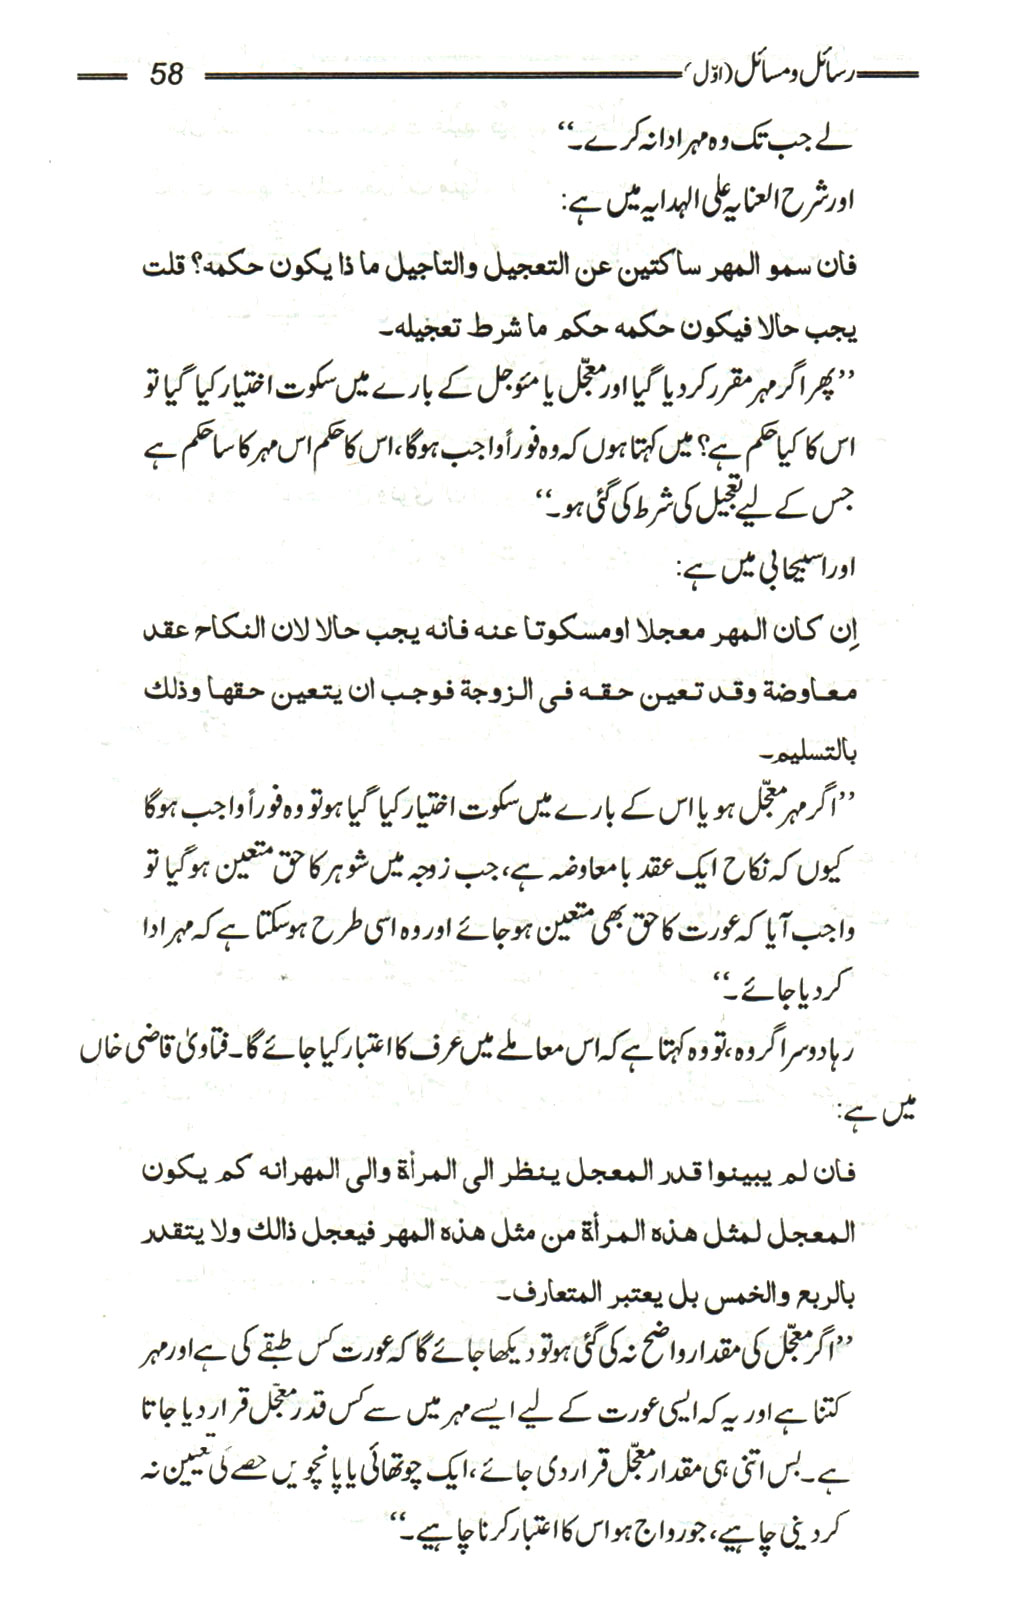 رسائل و مسائل (اوّل) 58
لے جب تک وہ مہر ادا نہ کرے۔‘‘
اور شرح العنایہ علی الہدایہ میں ہے:
فان سمو المهر ساکتین عن التعجیل والتاجیل ما ذا یکون حکمه؟ قلت
یجب حالا فیکون حکمه حکم ما شرط تعجیله۔
’’پھر اگر مہر مقرر کردیا گیا اور معجّل یا مئوجل کے بارے میں سکوت اختیار کیا گیا تو
اس کا کیا حکم ہے؟ میں کہتا ہوں کہ وہ فوراً واجب ہوگا، اس کا حکم اس مہر کا سا حکم ہے
جس کے لیے تعجیل کی شرط کی گئی ہو۔‘‘
اور اسبیجابی میں ہے:
اِن کان المهر معجلا اومسکوتا عنه فانه یجب حالا لان النکاح عقد
معاوضة وقد تعین حقه فی الزوجة فوجب ان یتعین حقها وذلك
بالتسلیم۔
’’اگر مہر معجّل ہو یا اس کے بارے میں سکوت اختیار کیا گیا ہو تو وہ فوراً واجب ہوگا
کیوں کہ نکاح ایک عقد بامعاوضہ ہے، جب زوجہ میں شوہر کا حق متعین ہوگیا تو
واجب آیا کہ عورت کا حق بھی متعین ہوجائے اور وہ اسی طرح ہوسکتا ہے کہ مہر ادا
کردیا جائے۔‘‘
رہا دوسرا گروہ، تو وہ کہتا ہے کہ اس معاملے میں عرف کا اعتبار کیا جائے گا۔ فتاویٰ قاضی خاں
میں ہے:
فان لم یبینوا قدر المعجل ینظر الی المرأة والی المهرانه کم یکون
المعجل لمثل هذه المرأة من مثل هذه المهر فیعجل ذالك ولا یتقدر
بالربع والخمس بل یعتبر المتعارف۔
’’اگر معجّل کی مقدار واضح نہ کی گئی ہو تو دیکھا جائے گا کہ عورت کس طبقے کی ہے اور مہر
کتنا ہے اور یہ کہ ایسی عورت کے لیے ایسے مہر میں سے کس قدر معجّل قرار دیا جاتا
ہے۔ بس اتنی ہی مقدار معجّل قرار دی جائے، ایک چوتھائی یا پانچویں حصے کی تعیین نہ
کردینی چاہیے، جو رواج ہو اس کا اعتبار کرنا چاہیے۔‘‘